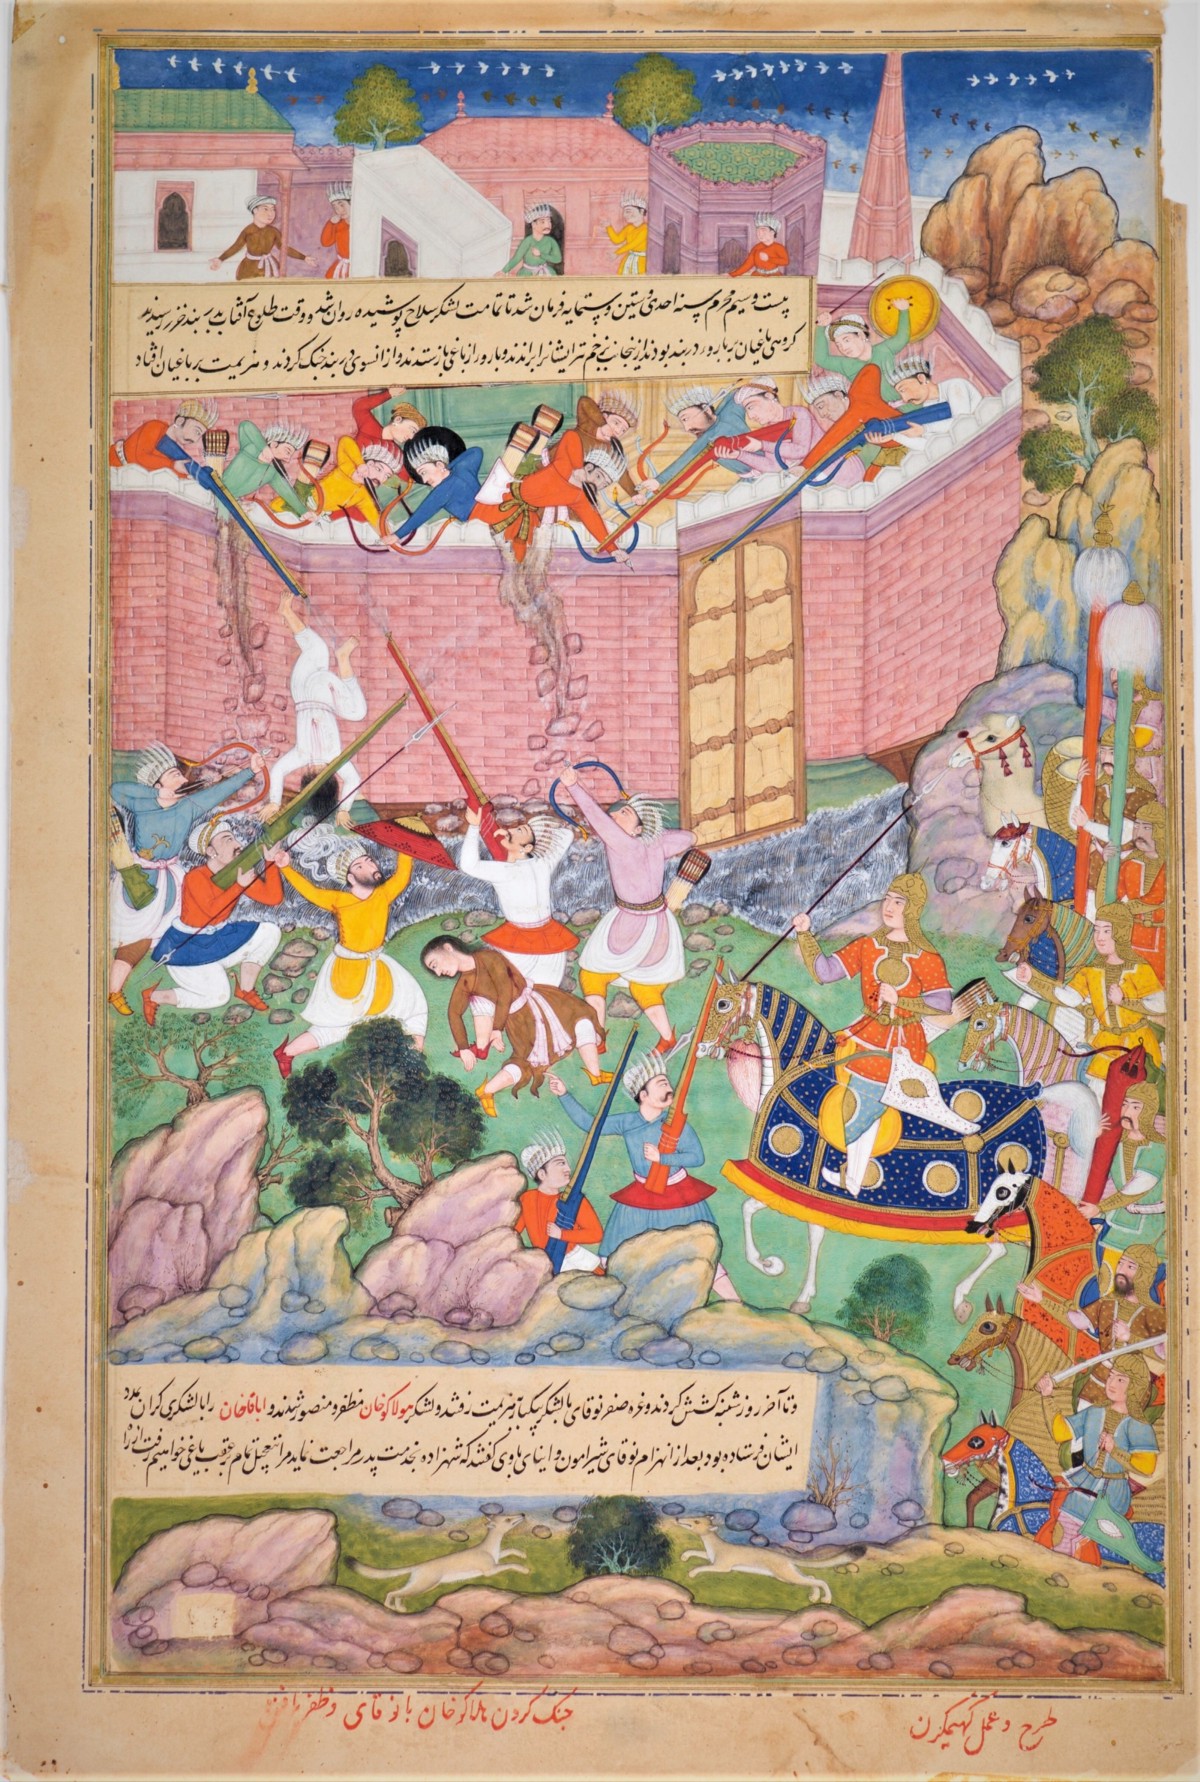 بیست و سیم محرم سنه احدی و ستین و ستمایه فرمان شد تا تمامت لشکر سلاح پوشیده روان شد و وقت طلوع آفتاب بدربند خزر رسیدند
گروهی یاغیان بر باروء دربند بودند از ینجانب بزخم تیر ایشانرا براندند و بارو را از یاغی بازستدند و از آنسوی دربند جنک کردند و هزیمت بر یاغیان افتاد
و تا آخر روز شنبه کشش کردند و غره صفر نوقای با لشکر بیکبار هزیمت رفتند و لشکر هولاکوخان مظفر و منصور شدند و اباقاخان را با لشکری گران بمدد
ایشان فرستاده بود بعد از انهزام نوقای شیرامون و ابتای نویان گفتند که شهزاده بخدمت پدر مراجعت نماید ما بتعجیل تمام بر عقب یاغی خواهیم رفت
جنک کردن هلاکو خان با نوقای و ظفر یافتن
طرح و عمل کهیمکرن